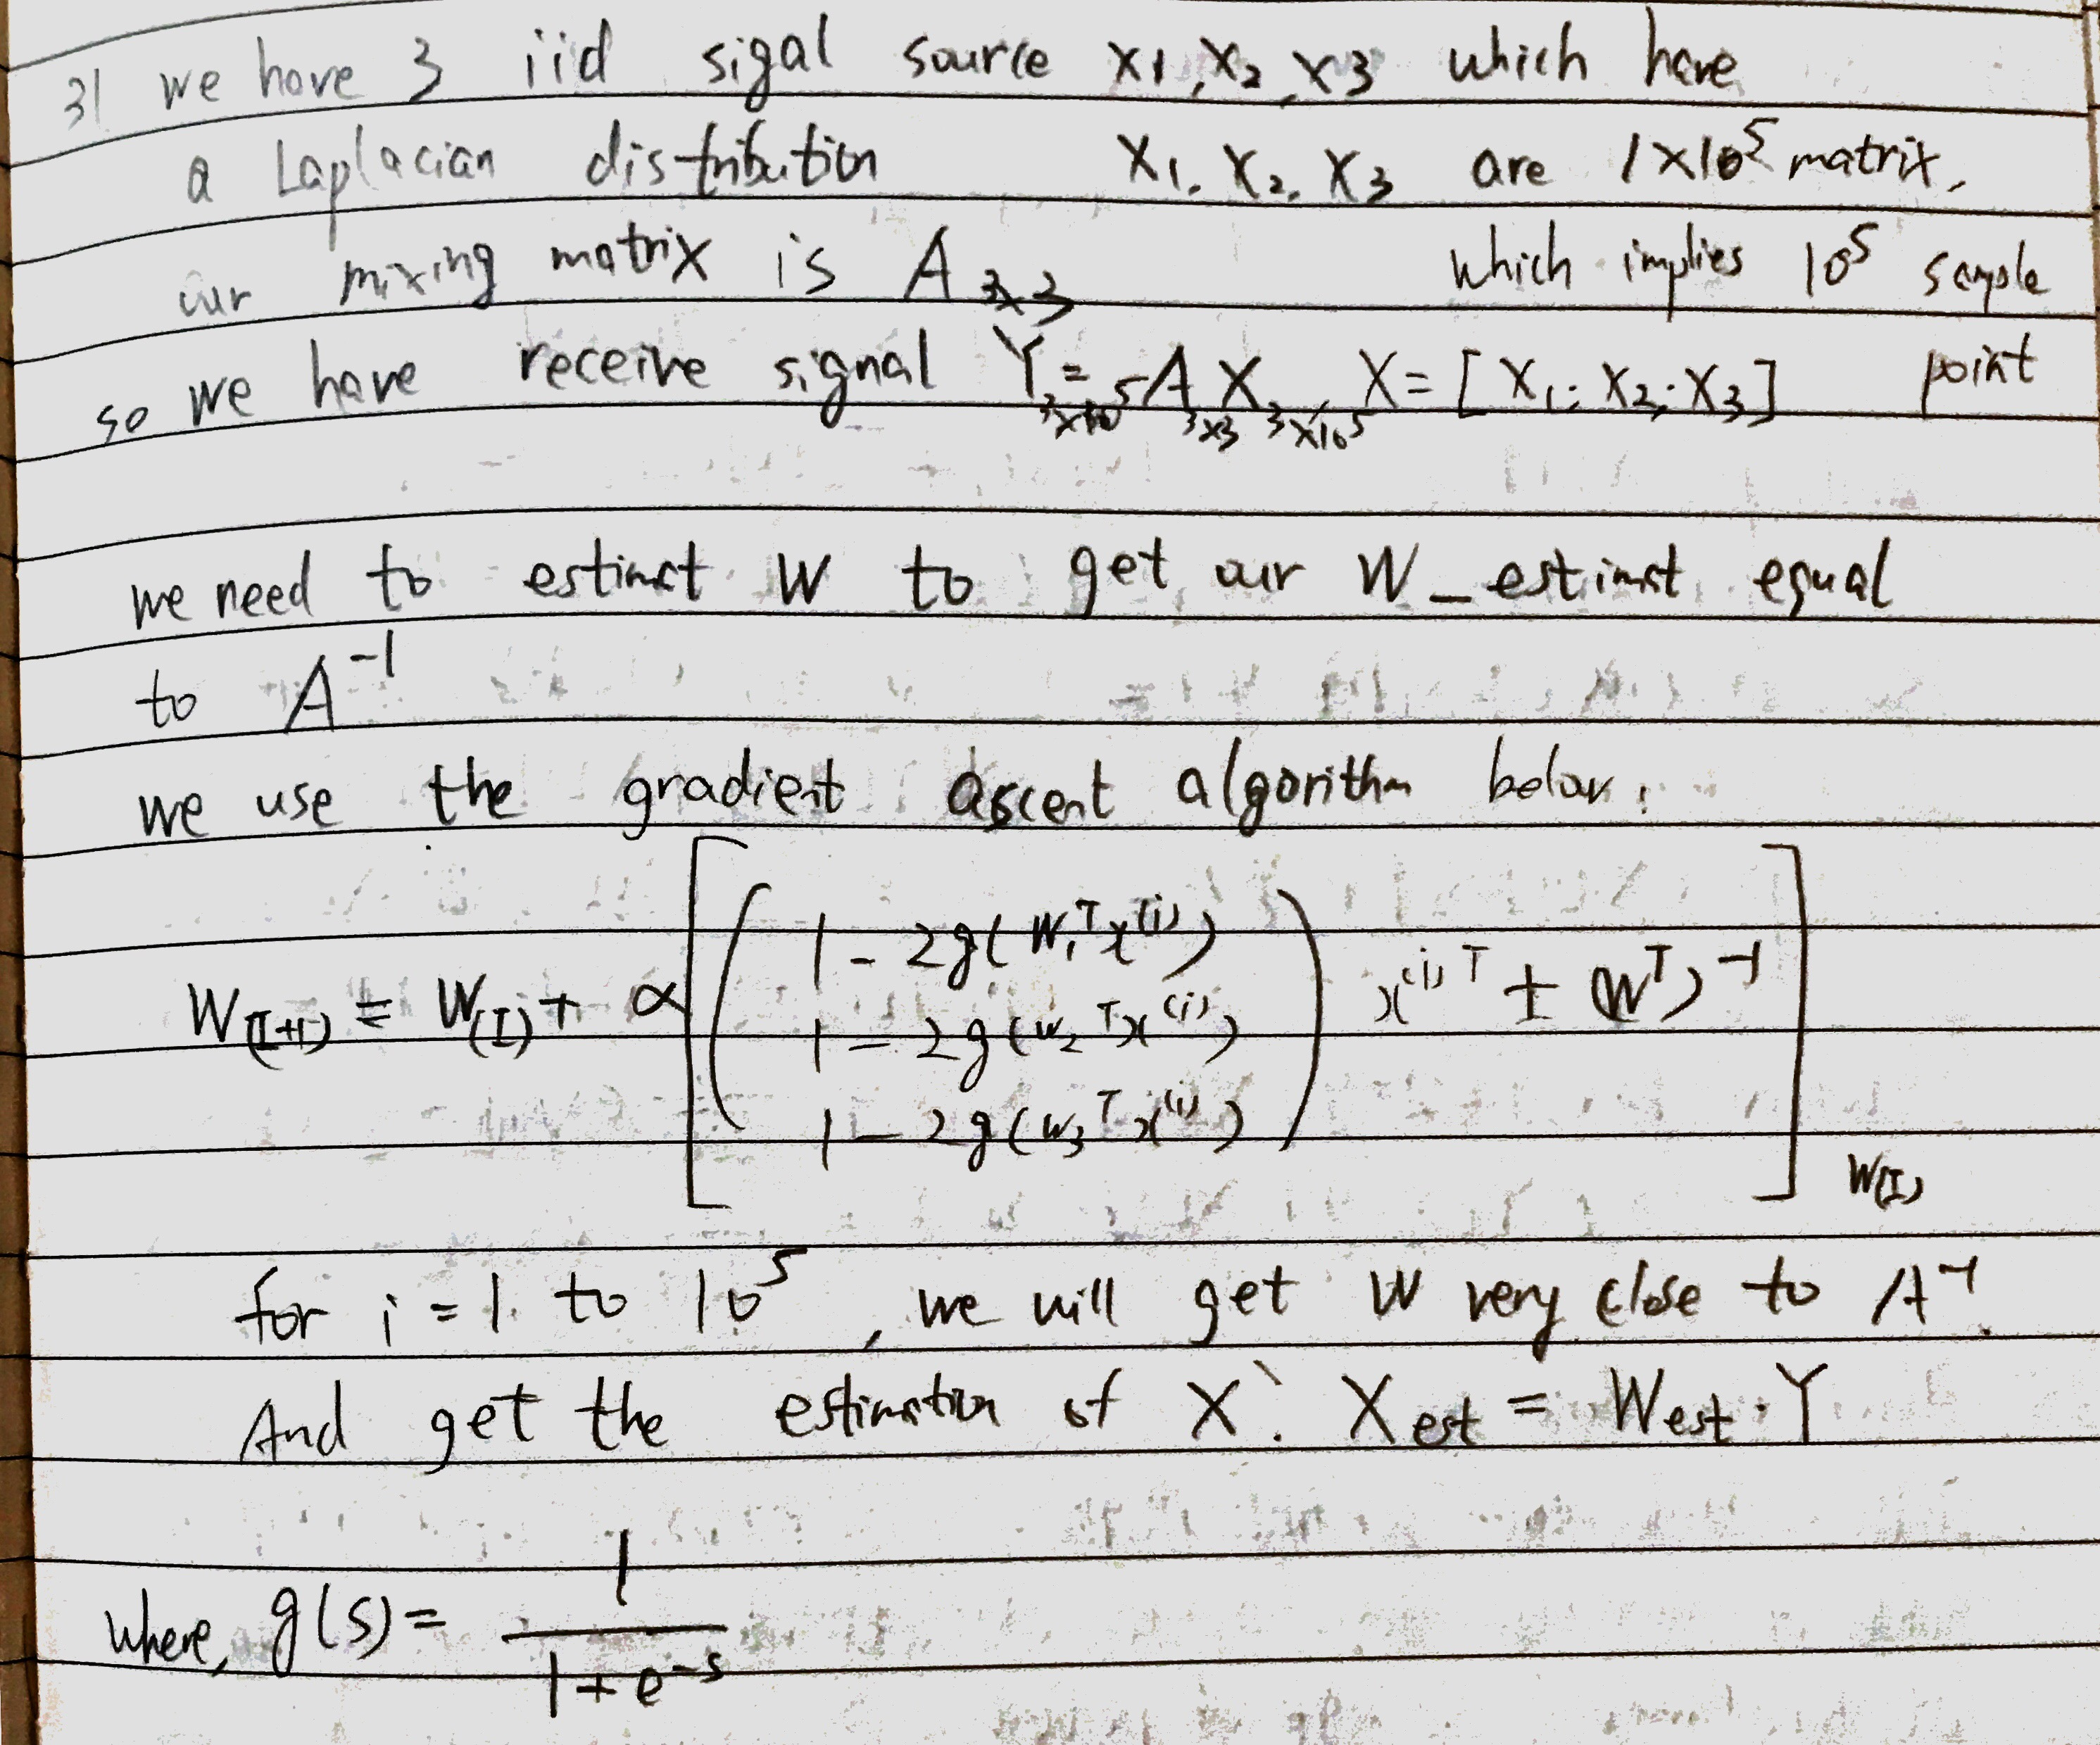 31 we have 3 iid sigal source x1, x2, x3 which have
a Laplacian distribution X1. X2. X3 are 1×10^5 matrix.
our mixing matrix is A3×3 which implies 10^5 sample
so we have receive signal Y3×10^5 = A3×3 X3×10^5, X = [X1; X2; X3] point
we need to estimat W to get our W_estimat equal
to A^-1
we use the gradient ascent algorithm below:
W(I+1) = W(I) + α [ ( 1 - 2g(W1^T x^(i)) 1 - 2g(w2^T x^(i)) 1 - 2g(w3^T x^(i)) ) x^(i)T + (W^T)^-1 ] W(I)
for i = 1 to 10^5, we will get W very close to A^-1.
And get the estimation of X: Xest = West · Y
where, g(s) = 1 / 1 + e^-s